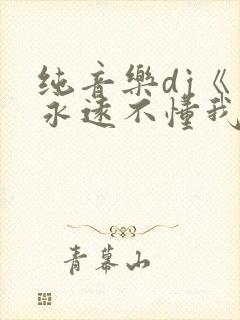 纯音樂dj《
永遠不懂我
青幕山